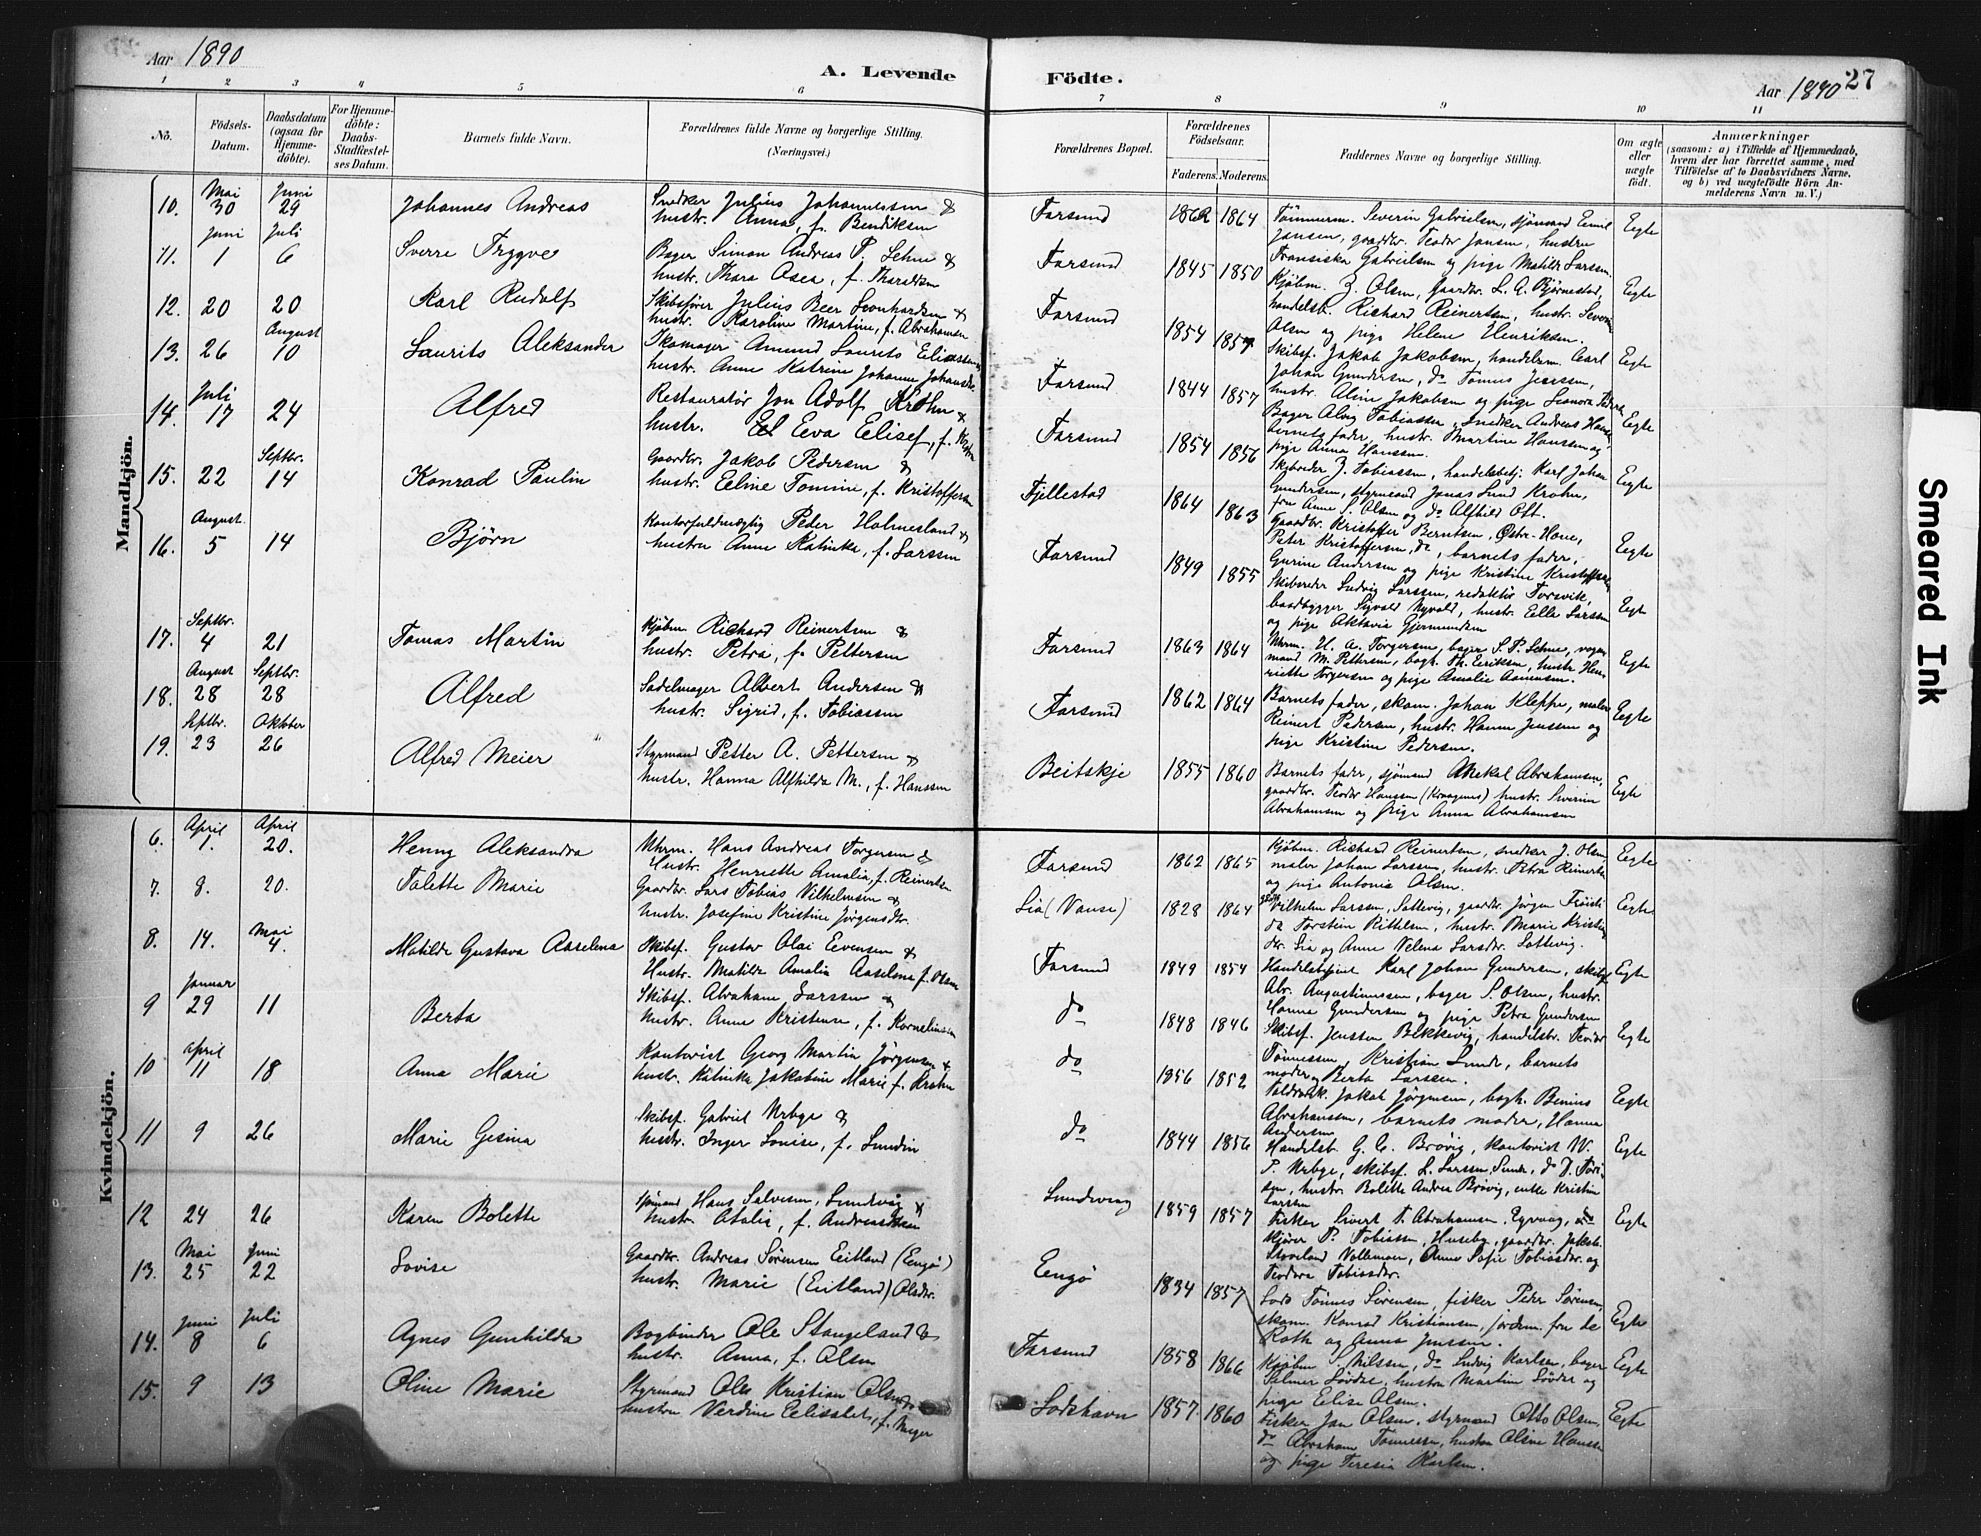 Aar 1890
A. Levende Födte.
Aar 1890 27
1 2 3 4 5 6 7 8 9 10 11
No.
Födsels-Datum.
Daabsdatum (ogsaa for Hjemme-döbte).
For Hjemme-döbte: Daabs-Stadfæstel-ses Datum.
Barnets fulde Navn.
Forældrenes fulde Navne og borgerlige Stilling.
(Næringsvei.)
Forældrenes Bopæl.
Forældrenes Födselsaar.
Faderens. Moderens.
Faddernes Navne og borgerlige Stilling.
Om ægte eller uægte födt.
Anmærkninger
(saasom: a) i Tilfælde af Hjemmedaab, hvem der har forrettet samme, med Tilföielse af to Daabsvidners Navne, og b) ved uægtefödte Börn An-melderens Navn m. V.)
Mandkjön.
10. Mai 30 Juni 29 Johannes Andreas
Snedker Julius Johannessen &
hustr. Anna, f. Bendiksen
Farsund 1862 1864
Tömmerm. Severin Gabrielsen, sjömand Emil
Jansen, gaardbr. Teodor Jansen, hustru
Fransiska Gabrielsen og pige Matilde Larssen.
Egte
11. Juni 1 Juli 6 Sverre Trygve
Bager Simon Andreas P. Lehne &
hustr. Thora Asea, f. Tharaldsen
Farsund 1845 1850
Kjøbm. Z. Olsen, gaardbr. L. A. Bjørnestad,
handelsb. Richard Reinertsen, hustr. Severine
Olsen og pige Helene Henriksen.
Egte
12. 20 20 Karl Rudolf
Skibsfører Julius Beer Leonhardsen &
hustr. Karoline Martine, f. Abrahamsen
Farsund 1854 1857
Skibsf. Jakob Jakobsen, handelsm. Carl
Johan Gundersen, do Tomas Jenssen,
hustr. Aline Jakobsen og pige Leonora Pedersen
Egte
13. 26 August 10 Laurits Aleksander
Skomager Amund Laurits Eliassen &
hustr. Anne Katrine Johanne Johansdr.
Farsund 1844 1857
Bager Alvig Tobiassen, snedker Andreas Hansen
barnets fader, hustr. Martine Hanssen og
pige Anna Hanssen.
Egte
14. Juli 17 24 Alfred
Restauratør Jon Adolf Krohn &
hustr. Eva Elisef, f.
Farsund 1854 1856
Skibreder Z. Tobiassen, handelsbetj. Karl Johan
Gundersen, styrmand Jonas Lund Krohn,
fru Anne S. Olsen og do Alfhild Ott.
Egte
15. 22 Septbr. 14 Konrad Paulin
Gaardbr. Jakob Pedersen &
hustr. Eline Tomine, f. Kristoffersen
Fjellestad 1864 1863
Gaardbr. Kristoffer Berntsen, Østre-Hone,
Peter Kristoffersen, do, barnets fader,
Gurine Andersen og pige Kristine Kristoffersen
Egte
16. August 5 14 Bjørn
Kontorfuldmægtig Peder Holmesland &
hustru Anna Katinka, f. Larssen
Farsund 1849 1855
Skibsreder Ludvig Larssen, redaktør Torsvik,
baadbygger Sigvald Nyvold, hustr. Elle Larssen
og pige Aktavia Gjermundsen
Egte
17. Septbr. 4 21 Tomas Martin
Kjøbm. Richard Reinertsen &
hustr. Petra, f. Pettersen
Farsund 1863 1864
Uhrm. H. A. Torgersen, bager S. P. Lehne, vogn-
mand M. Pettersen, bogh. Th. Eriksen, hustr. Hen-
riette Torgersen og pige Amalie Asmussen.
Egte
18. August 28 Septbr. 28 Alfred
Sadelmager Albert Andersen &
hustr. Sigrid, f. Tobiassen
Farsund 1862 1864
Barnets fader, skom. Johan Kleppe, maler
Reinert Pedersen, hustr. Hanne Jenssen og
pige Kristine Pedersen.
Egte
19. Septbr. 23 Oktober 26 Alfred Meier
Styrmand Petter A. Pettersen &
hustr. Hanna Alfhilda M., f. Hanssen
Beitskje 1855 1860
Barnets fader, sjømand Mekal Abrahamsen,
gaardbr. Teodor Hanssen (Kraagenes) hustr. Severine
Abrahamsen og pige Anna Abrahamsen
Egte
Kvindekjön.
6. April 1. April 20. Henny Aleksandra
Uhrm. Hans Andreas Torgersen &
Hustr. Henriette Amalia, f. Reinertsen
Farsund 1862 1865
Kjøbm. Richard Reinertsen, snedker J. Olsen,
maler Johan Larssen, hustr. Petra Reinertsen
og pige Antonie Olsen.
Egte
7. 8. 20. Talette Marie
Gaardbr. Lars Tobias Vilhelmsen &
hustr. Josefine Kristine Jørgensdr.
Lia (Vanse) 1828 1864
Vilhelm Larssen, Sattevig, gaardbr. Jørgen
do Torstein Kittelsen, hustr. Marie Kristens-
dr. Lia og Anne Velena Larsdr. Lattevig.
Egte
8. 14. Mai 4. Matilde Gustava Aaselena
Skibsf. Gustav Olai Evensen &
Hustr. Matilde Amalia Aaselena f. Olsen
Farsund 1849 1854
Handelsbetjent Karl Johan Gundersen, skibsf.
Abr. Augustinussen, bager S. Olsen, hustr.
Hanna Gundersen og pige Petra Gundersen
Egte
9 Januar 29 11 Berta
Skibsf. Abraham Larssen &
hustr. Anne Kristense, f. Korneliussen
do 1848 1846
Skibsf. Jenssen Bekkevig, handelsbr. Teodor
Tönnessen, Kristian Lunde, barnets
moder, Berta Larssen.
Egte
10 April 11 18 Anna Marie
Kontorist Georg Martin Jörgensen &
hustr. Katinka Jakobine Marie f. Krohn
do 1856 1852
Toldropsk. Jakob Jörgensen, bogh. Benius
Abrahamsen, barnets moder, Hanna
Andersen
Egte
11 9 26 Marie Gesina
Skibsf. Gabriel Urbye &
hustr. Inger Louise, f. Lundin
do 1844 1856
Handelsb. G. C. Brøvig, kontorist W.
P. Urbye, skibsf. L. Larssen, Lunde, do J. Tørres-
sen, hustr. Bolette Andrea Brøvig, enke Kristine
Larssen
Egte
12 24 26 Karen Bolette
Sjömand Hans Salvesen, Lundvåg &
hustr. Atalia, f. Andreassen
Lundevaag 1859 1857
Fisker Sivert T. Abrahamsen, Egvaag, do
P. Tobiassen, Huseby, gaardbr. Jakob
Stoveland Vollemoen, Anne Sofie Tobiasdr. og
Teodora Tobiasdr.
Egte
13. Mai 25 Juni 22 Lovise
Gaardbr. Andreas Sørensen Eitland (Eengö)
hustr. Marie (Eitland) Olsdr.
Eengö 1834 1857
Lods Tönnes Sörensen, fisker Peder Sörensen,
skom. Konrad Kristiansen, jordem. fru de
Roth og Anna Jenssen.
Egte
14. Juni 8 Juli 6 Agnes Gunhilda
Bogbinder Ole Stangeland &
hustr. Anna, f. Olsen
Farsund 1858 1866
Kjöbm S. Nilssen, do Ludvig Karlsen, bager
Salmer Lövdal, hustru Martine Lövdal og
pige Elise Olsen.
Egte
15. 9 13 Oline Marie
Styrmand Ole Kristian Olsen &
hustru Verdine Elisabet, f. Meyer
Loshavn 1857 1860
Fisker Jan Olsen, styrmand Otto Olsen,
do Abraham Tönnessen, hustru Olsine Hanssen
og pige Teresia Karlsen.
Egte
Smeared Ink